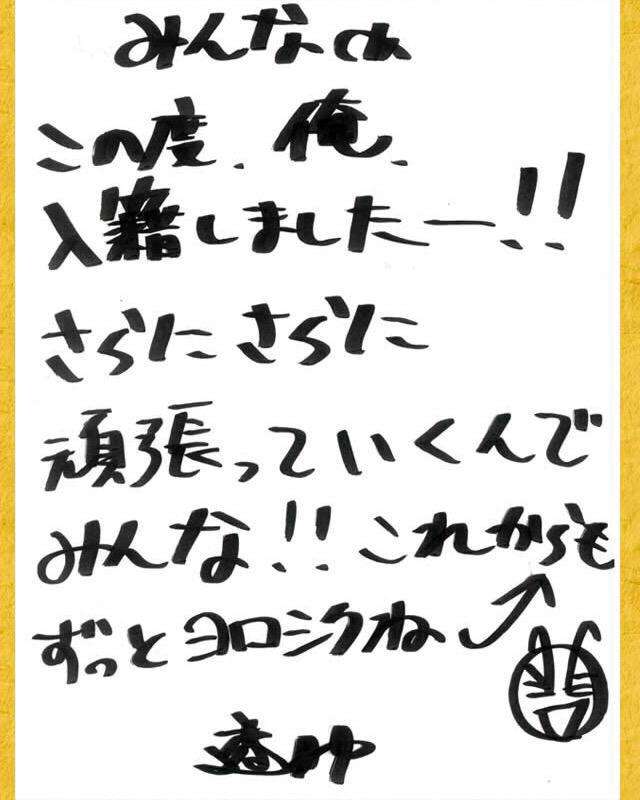 みんなへ
この度、俺、
入籍しましたー!!
さらにさらに
頑張っていくんで
みんな!!これからも
ずっとヨロシクね